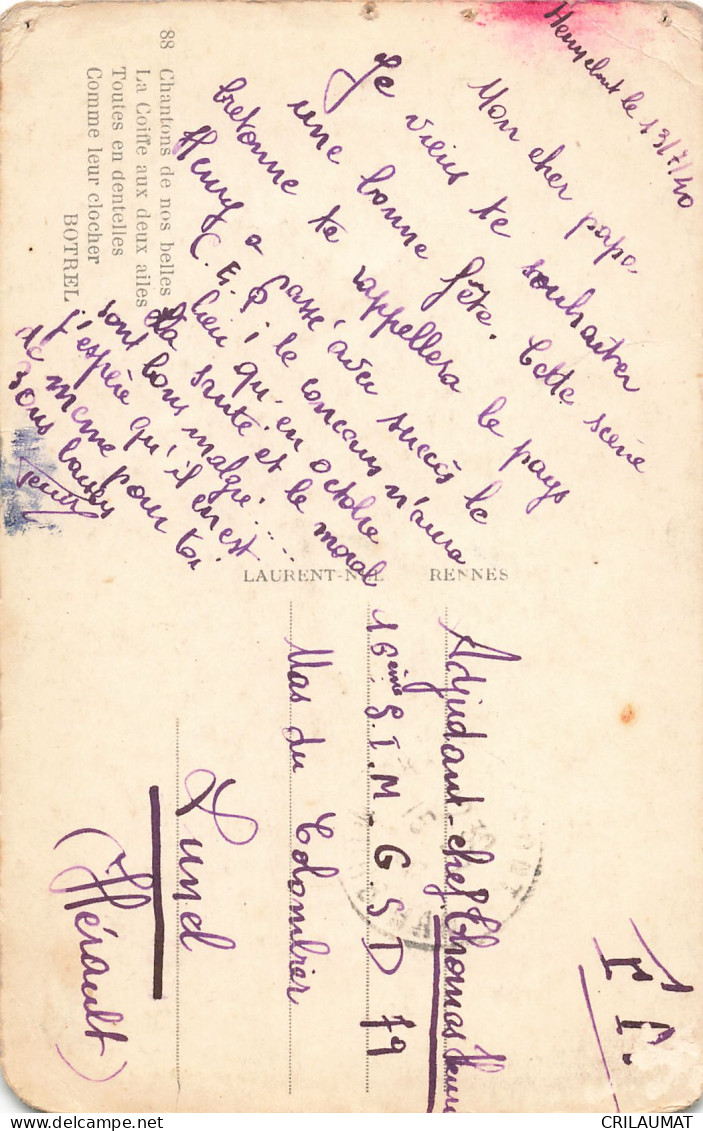 le 13/7/40
Mon cher papa
Je viens te souhaiter
une bonne fête. Cette scène
bretonne te rappellera le pays
Henry a passé avec succès le
C.E.P; le concours n'aura
lieu qu'en octobre
La santé et le moral
sont bons malgré.......
j'espère qu'il en est
de même pour toi
88 Chantons de nos belles
La Coiffe aux deux ailes
Toutes en dentelles
Comme leur clocher
BOTREL
LAURENT-NEL RENNES
F.P.
Adjudant-chef Thomas
16ème S.I.M - G.S.D 79
Mas du Colombier
Lunel
(Hérault)
CRILAUMAT